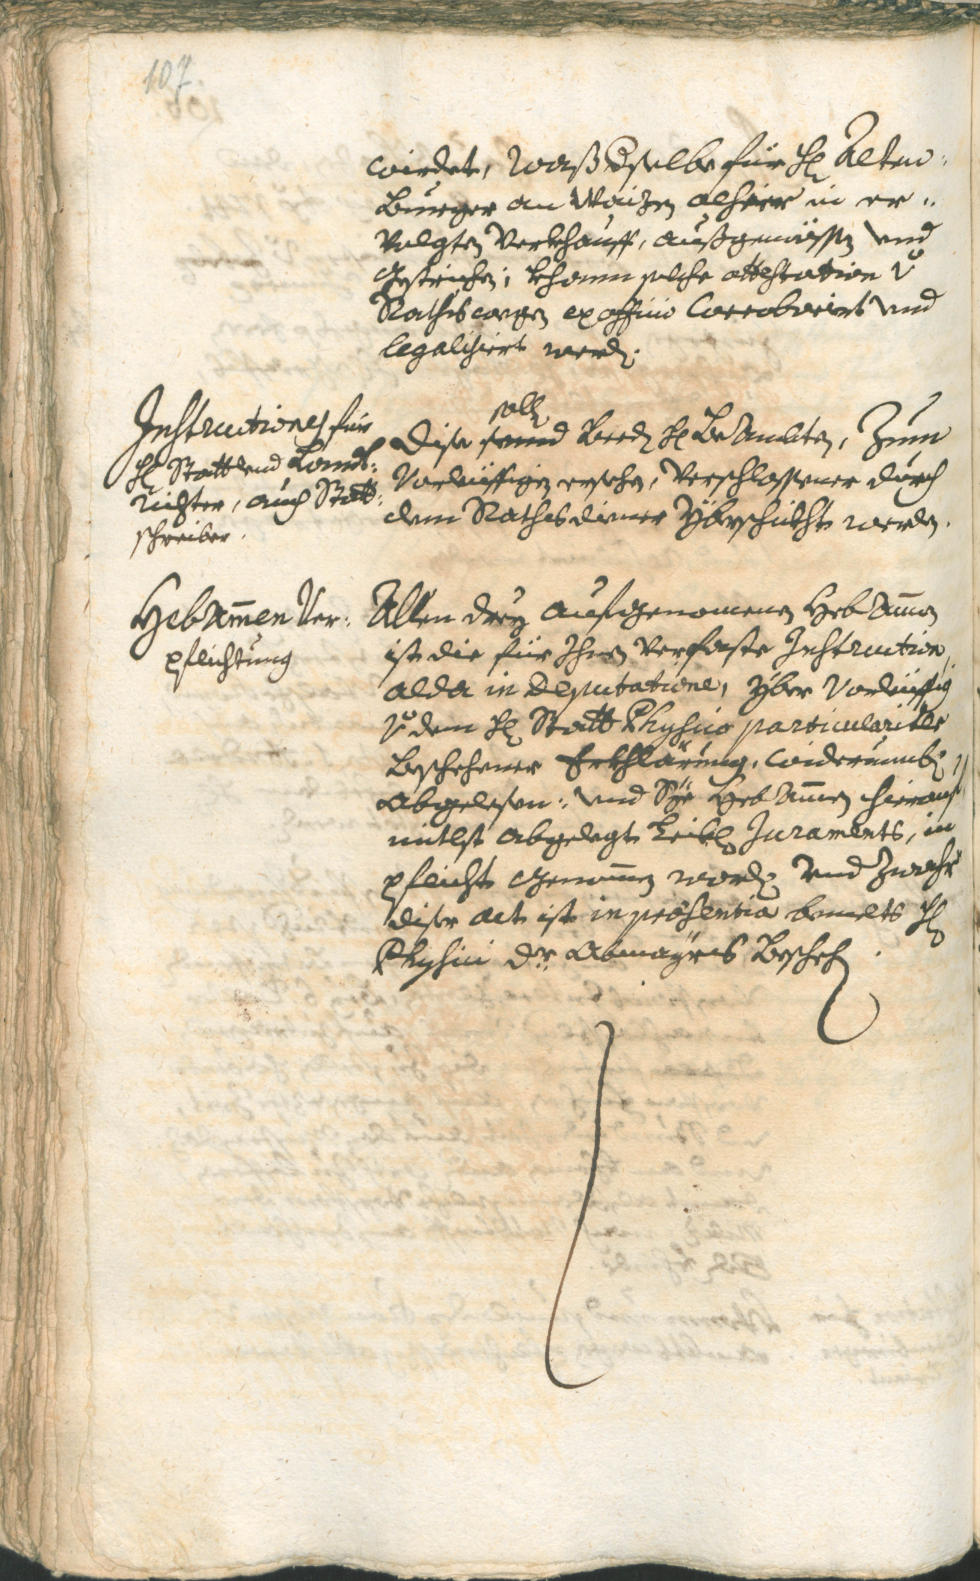 107.
wirdet, Waß Derselbe für H: Alten-
Burger an Waizen alhier in er-
volgten Verkhauff, außgemässen und
gestrichen; khann solche attestation v:
Raths wegen ex officio Corroboriert und
legalisiert werden.
Instructiones für
H: Statt und Landt-
richter, auch Statt-
schreiber.
solln
Dise seind beeden H: Beambten, Zum
Vorleuffigen ersehen, Verschlossener durch
dem Rathsdiener Yberschickht werden.
Hebammen Ver-
pflichtung
Allen drey aufgenomenen Hebammen
ist die für Ihnen verfaste Instruction,
alda in Deputatione, yber Vorleuffig
v: dem H: Statt Physico particulariter
Beschehener Erkhlärung, widerumben
Abgelesen: und Sye Hebammen hierauf
mitlst abgelegt Leibl: Juraments, in
pflicht genommen worden, und Zwahr
diser act ist in præsentia bemelts H:
Physici Dr: Abmayrs Beschehen.